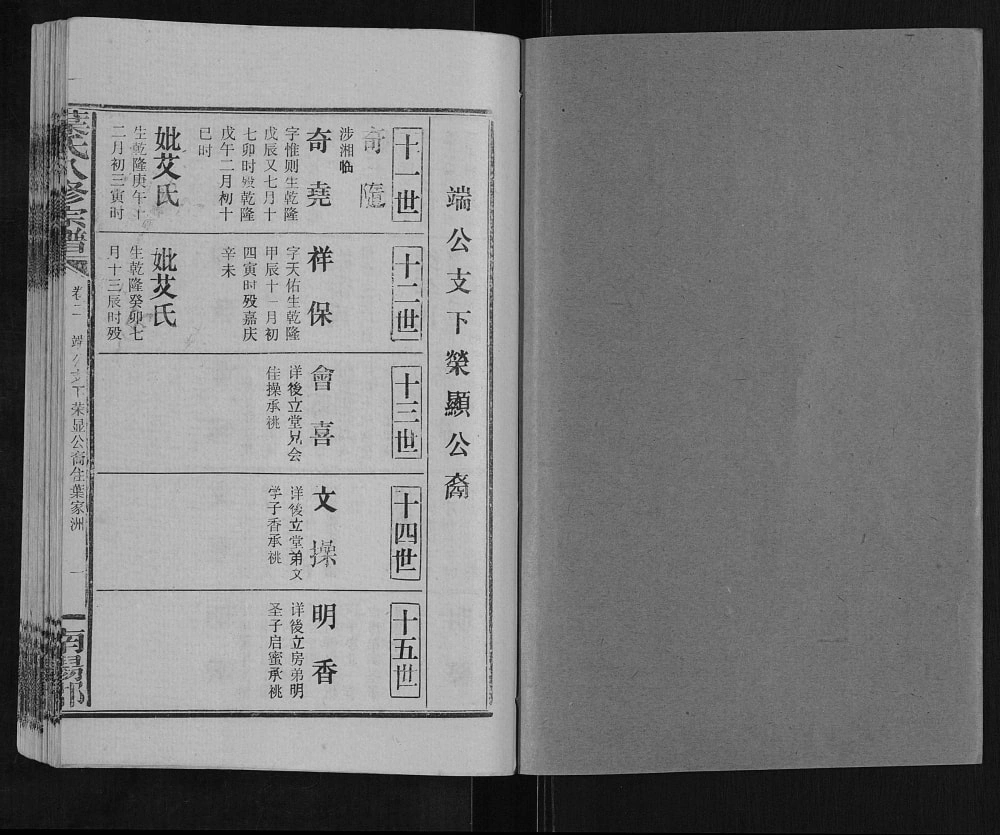 端公支下榮顯公裔
十一世
奇隨
涉湘临
奇堯
字惟则生乾隆
戊辰又七月十
七卯时殁乾隆
戊午二月初十
巳时
妣艾氏
生乾隆庚午十
二月初三寅时
十二世
祥保
字天佑生乾隆
甲辰十一月初
四寅时殁嘉庆
辛未
妣艾氏
生乾隆癸卯七
月十三辰时殁
十三世
會喜
详後立堂兄会
佳操承祧
十四世
文操
详後立堂弟文
学子香承祧
十五世
明香
详後立房弟明
圣子启蜜承祧
葉氏八修宗譜
卷二
端公支下荣显公裔住葉家洲
一
南陽郡